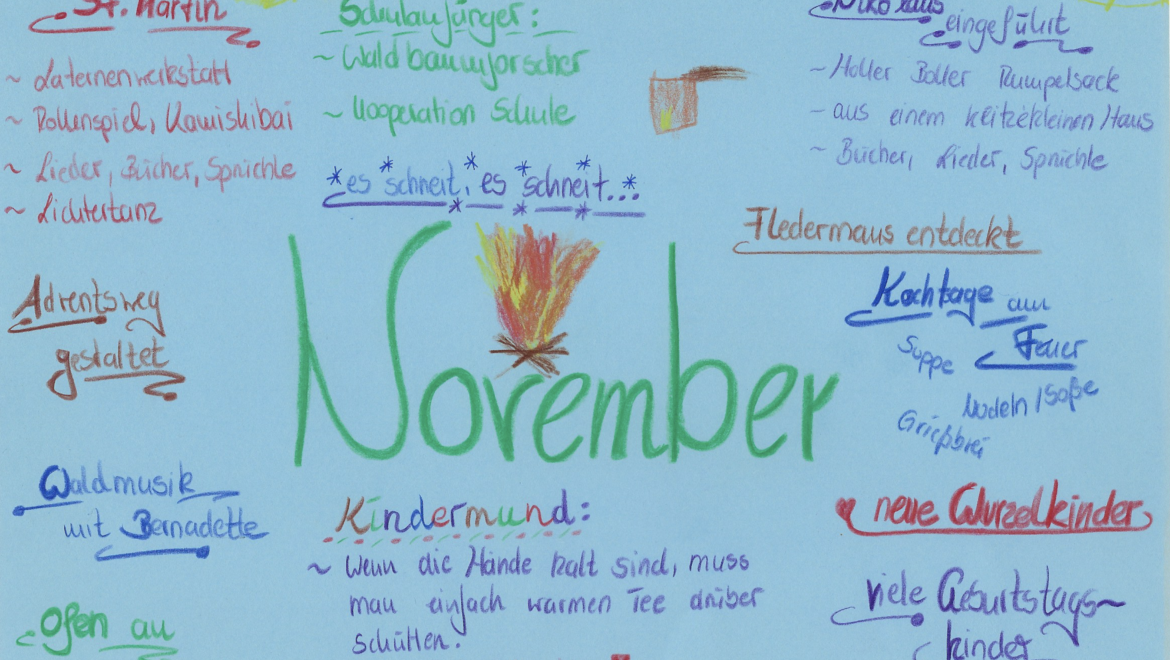 St. Martin
~ Laternenwerkstatt
~ Rollenspiel, Kamishibai
~ Lieder, Bücher, Sprüchle
~ Lichtertanz
Adventsweg
gestaltet
Waldmusik
mit Bernadette
Ofen an
Schulanfänger:
~ Waldbaumforscher
~ Kooperation Schule
*es *schneit, *es *schneit...*
November
Kindermund:
~ Wenn die Hände kalt sind, muss
man einfach warmen Tee drüber
schütten.
Nikolaus
eingeführt
~ Holler Boller Rumpelsack
- aus einem klitzekleinen Haus
~ Bücher, Lieder, Sprüchle
Fledermaus entdeckt
Kochtage am
Feuer
Suppe
Nudeln/Soße
Grießbrei
neue Wurzelkinder
viele Geburtstags~
kinder